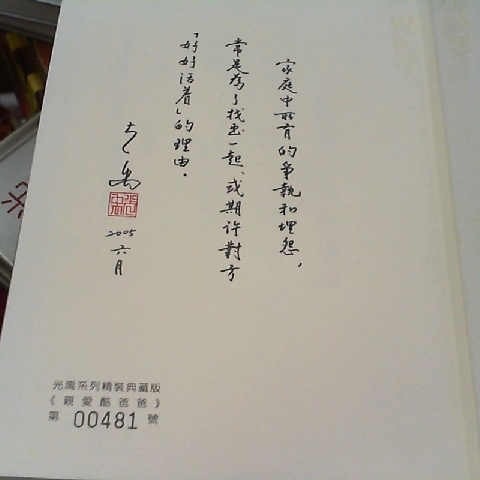 家庭中所有的爭執和埋怨，
常是為了找出一起、或期許對方
「好好活着」的理由。
光禹
2005
六月
光禹系列精裝典藏版
《親愛酷爸爸》
第 00481 號